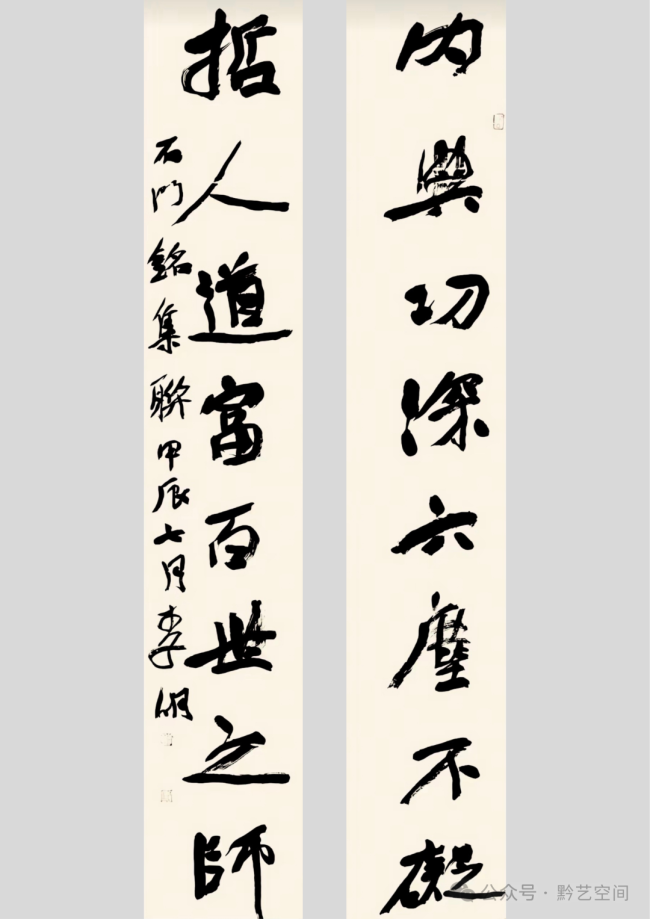 内典功深六塵不礙
哲人道富百世之師
石門銘集聯甲辰七月李明
公众号·黔艺空间